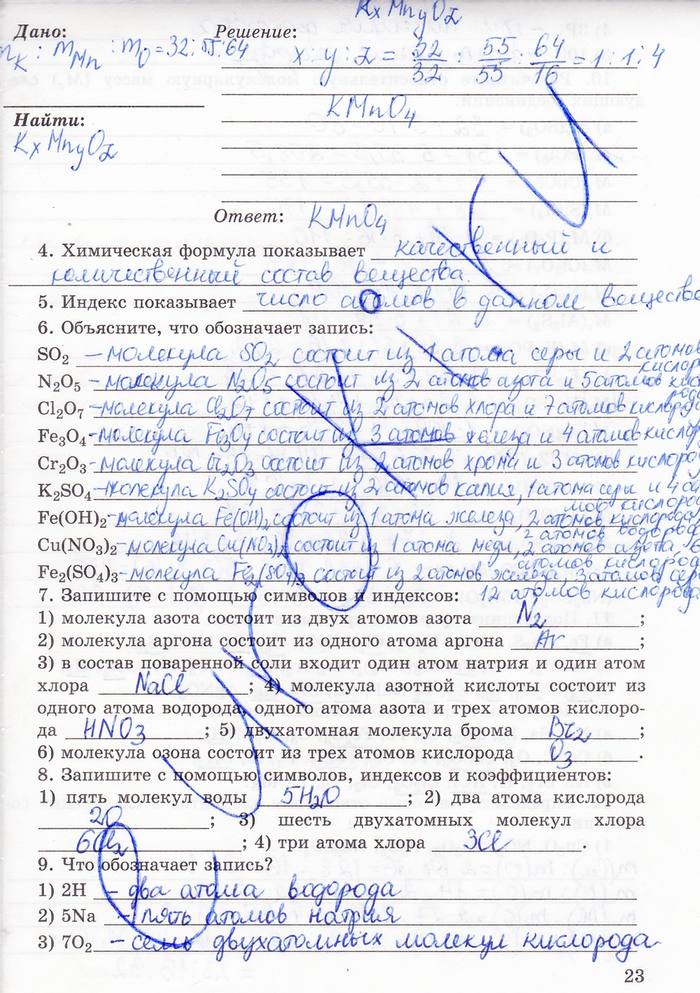 KxMnyOz
Дано: Решение:
mK : mMn : mO = 32:55:64 x:y:z = 32/32 : 55/55 : 64/16 = 1:1:4
KMnO4
Найти:
KxMnyOz
Ответ: KMnO4
4. Химическая формула показывает качественный и
количественный состав вещества.
5. Индекс показывает число атомов в данном веществе
6. Объясните, что обозначает запись:
SO2 – молекула SO2 состоит из 1 атома серы и 2 атомов
кислор
N2O5 – молекула N2O5 состоит из 2 атомов азота и 5 атомов кис
рода
Cl2O7 – молекула Cl2O7 состоит из 2 атомов хлора и 7 атомов кислоро
Fe3O4 – молекула Fe3O4 состоит из 3 атомов железа и 4 атомов кислор
Cr2O3 – молекула Cr2O3 состоит из 2 атомов хрома и 3 атомов кислоро
K2SO4 – молекула K2SO4 состоит из 2 атомов калия, 1 атома серы и 4 ато
мов кислоро
Fe(OH)2 – молекула Fe(OH)2 состоит из 1 атома железа, 2 атомов кислорода
2 атомов водоро
Cu(NO3)2 – молекула Cu(NO3)2 состоит из 1 атома меди, 2 атомов азота
атомов кислорода
Fe2(SO4)3 – молекула Fe2(SO4)3 состоит из 2 атомов железа, 3 атомов сер
7. Запишите с помощью символов и индексов: 12 атомов кислорода
1) молекула азота состоит из двух атомов азота N2 ;
2) молекула аргона состоит из одного атома аргона Ar ;
3) в состав поваренной соли входит один атом натрия и один атом
хлора NaCl ; 4) молекула азотной кислоты состоит из
одного атома водорода, одного атома азота и трех атомов кислоро-
да HNO3 ; 5) двухатомная молекула брома Br2 ;
6) молекула озона состоит из трех атомов кислорода O3 .
8. Запишите с помощью символов, индексов и коэффициентов:
1) пять молекул воды 5H2O ; 2) два атома кислорода
2O ; 3) шесть двухатомных молекул хлора
6Cl2 ; 4) три атома хлора 3Cl .
9. Что обозначает запись?
1) 2H – два атома водорода
2) 5Na – пять атомов натрия
3) 7O2 – семь двухатомных молекул кислорода
23